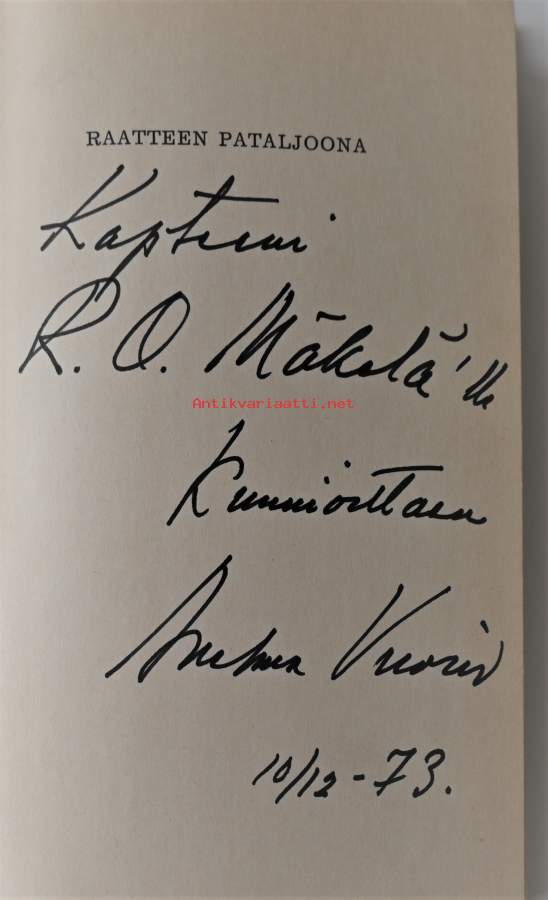 RAATTEEN PATALJOONA
Kapteeni
R. O. Mäkelä'lle
Antikvariaatti.net
Kunnioittaen
10/12 - 73.